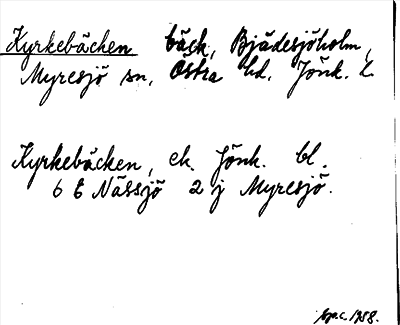 Kyrkebäcken bäck, Bjädesjöholm,
Myresjö sn, Östra hd, Jönk. L.
Kyrkebäcken, ek. Jönk. bl.
6 E Nässjö 2 j Myresjö.
1958.